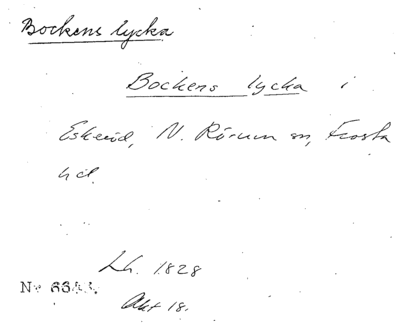 Bockens lycka
Bockens lycka i
Eskeröd, N. Rörum sn, Frosta
hd.
Lh. 1828
Akt 18.
No